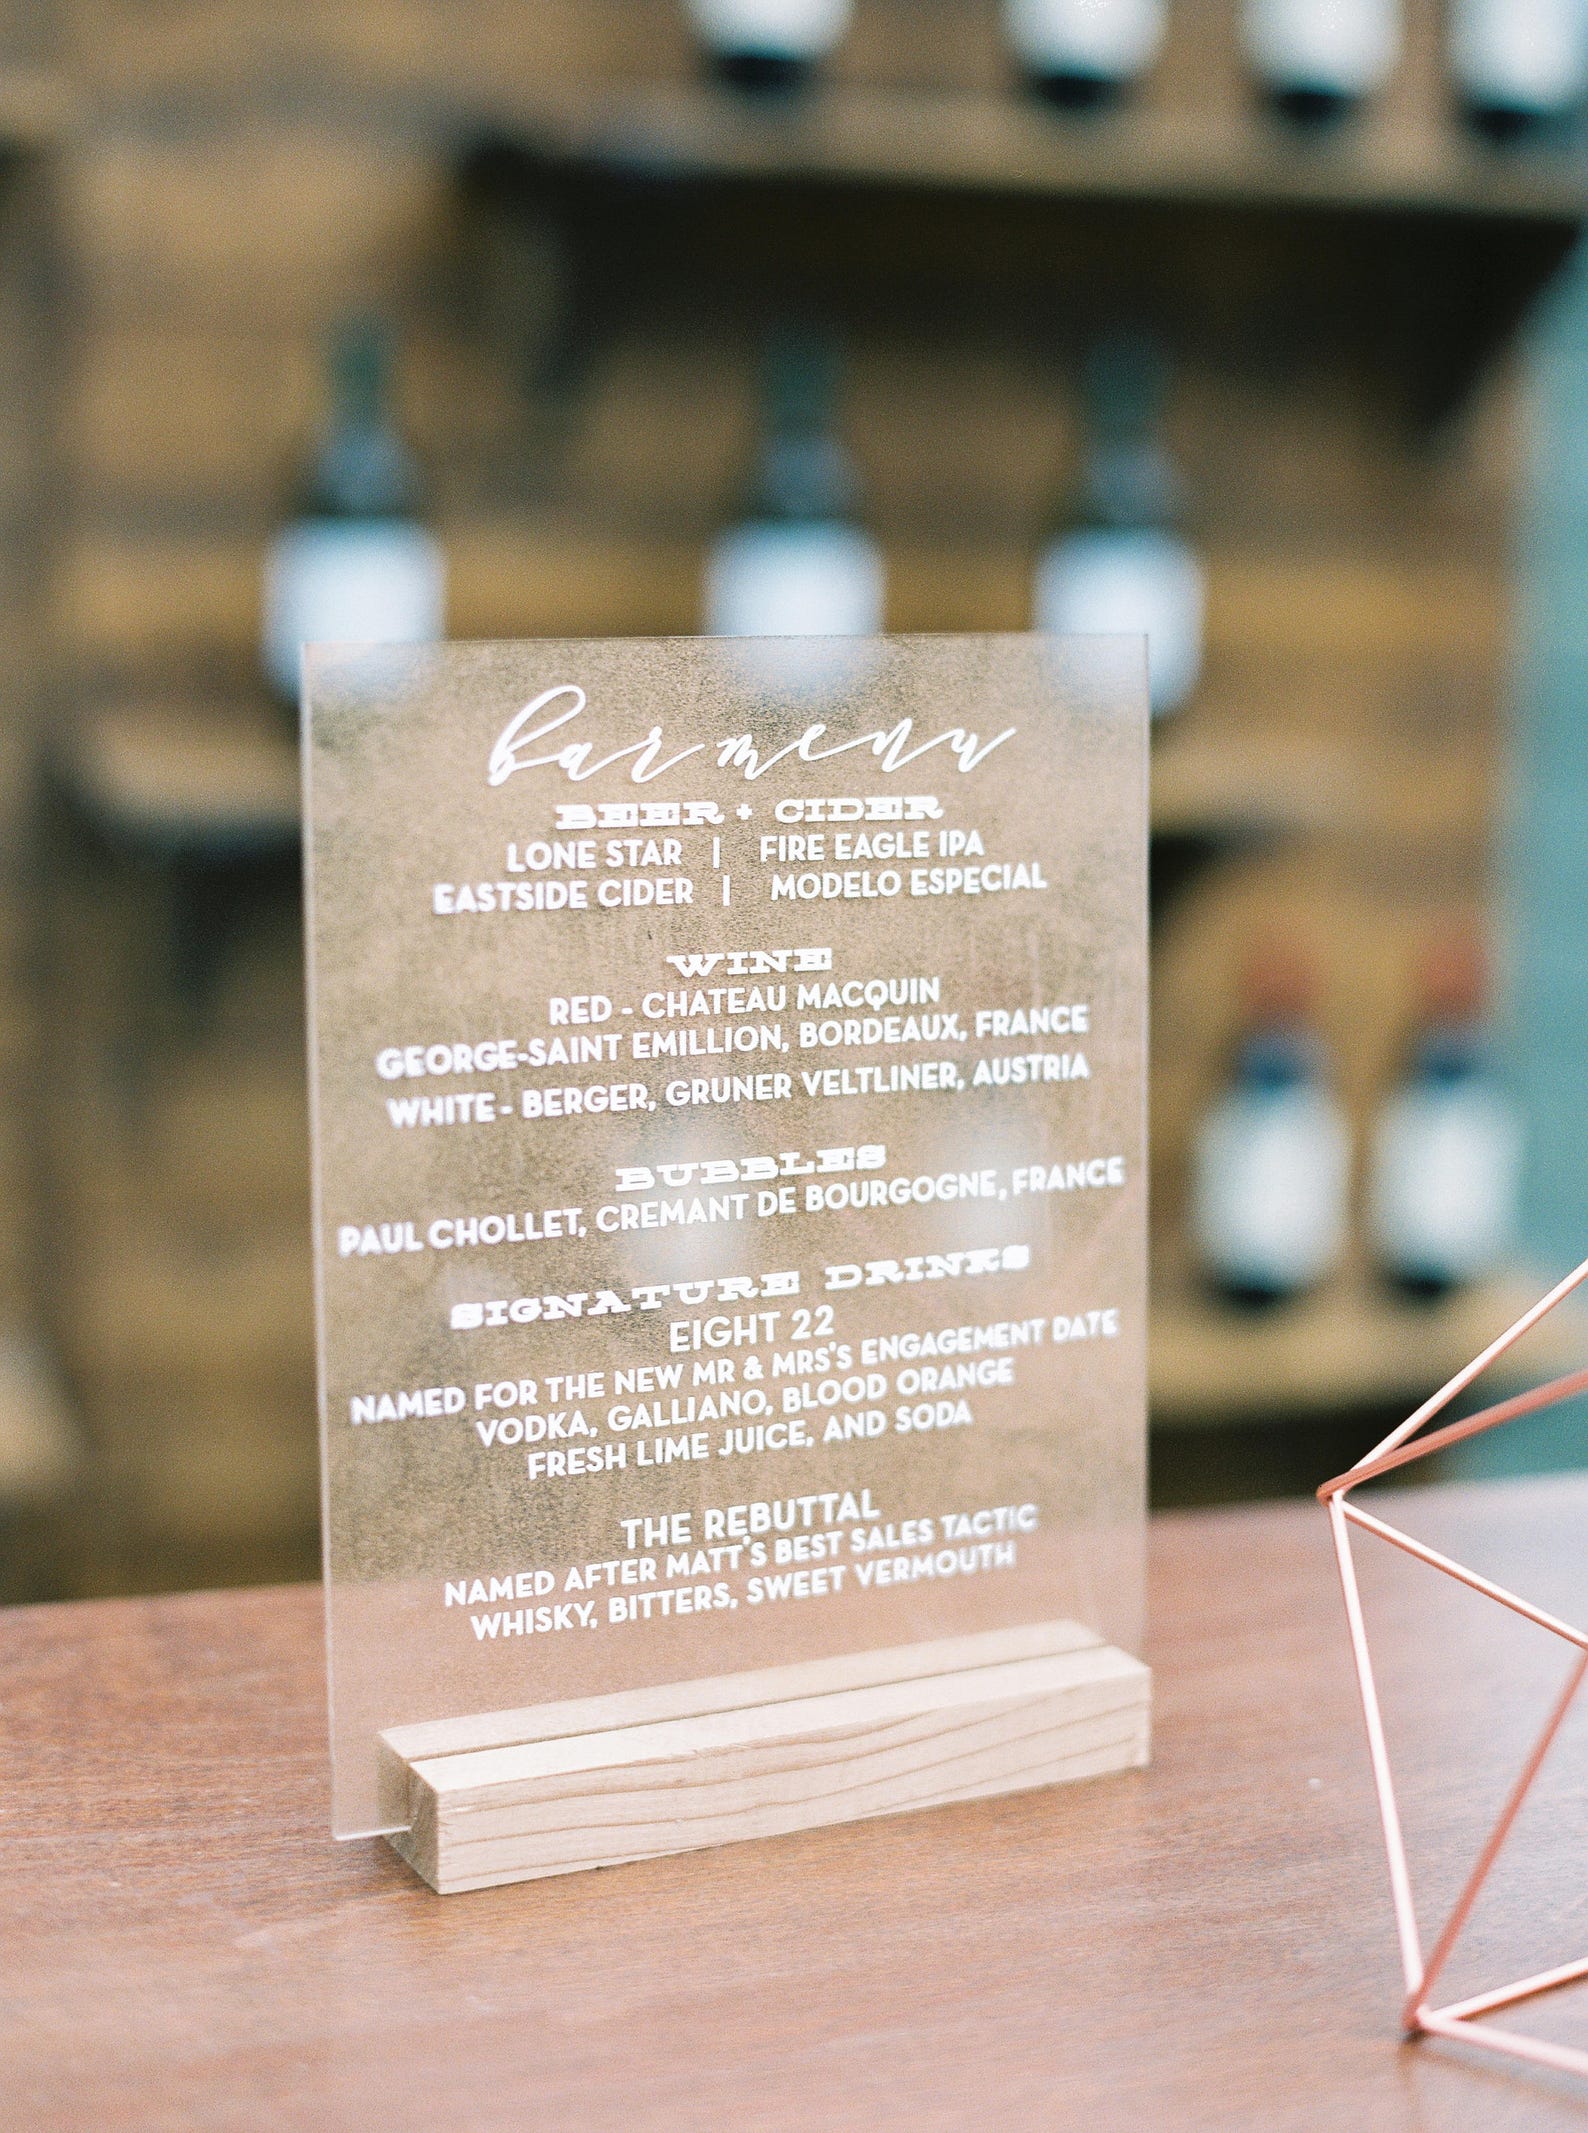 bar menu
BEER + CIDER
LONE STAR | FIRE EAGLE IPA
EASTSIDE CIDER | MODELO ESPECIAL
WINE
RED - CHATEAU MACQUIN
GEORGE-SAINT EMILLION, BORDEAUX, FRANCE
WHITE - BERGER, GRUNER VELTLINER, AUSTRIA
BUBBLES
PAUL CHOLLET, CREMANT DE BOURGOGNE, FRANCE
SIGNATURE DRINKS
EIGHT 22
NAMED FOR THE NEW MR & MRS'S ENGAGEMENT DATE
VODKA, GALLIANO, BLOOD ORANGE
FRESH LIME JUICE, AND SODA
THE REBUTTAL
NAMED AFTER MATT'S BEST SALES TACTIC
WHISKY, BITTERS, SWEET VERMOUTH